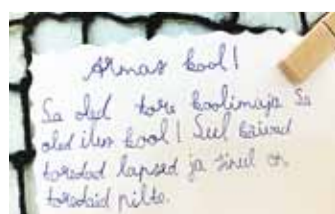 Armas kool!
Sa oled tore koolimaja Sa
oled ilus kool! Seel käivad
toredad lapsed ja sinul on
toredaid pilte.